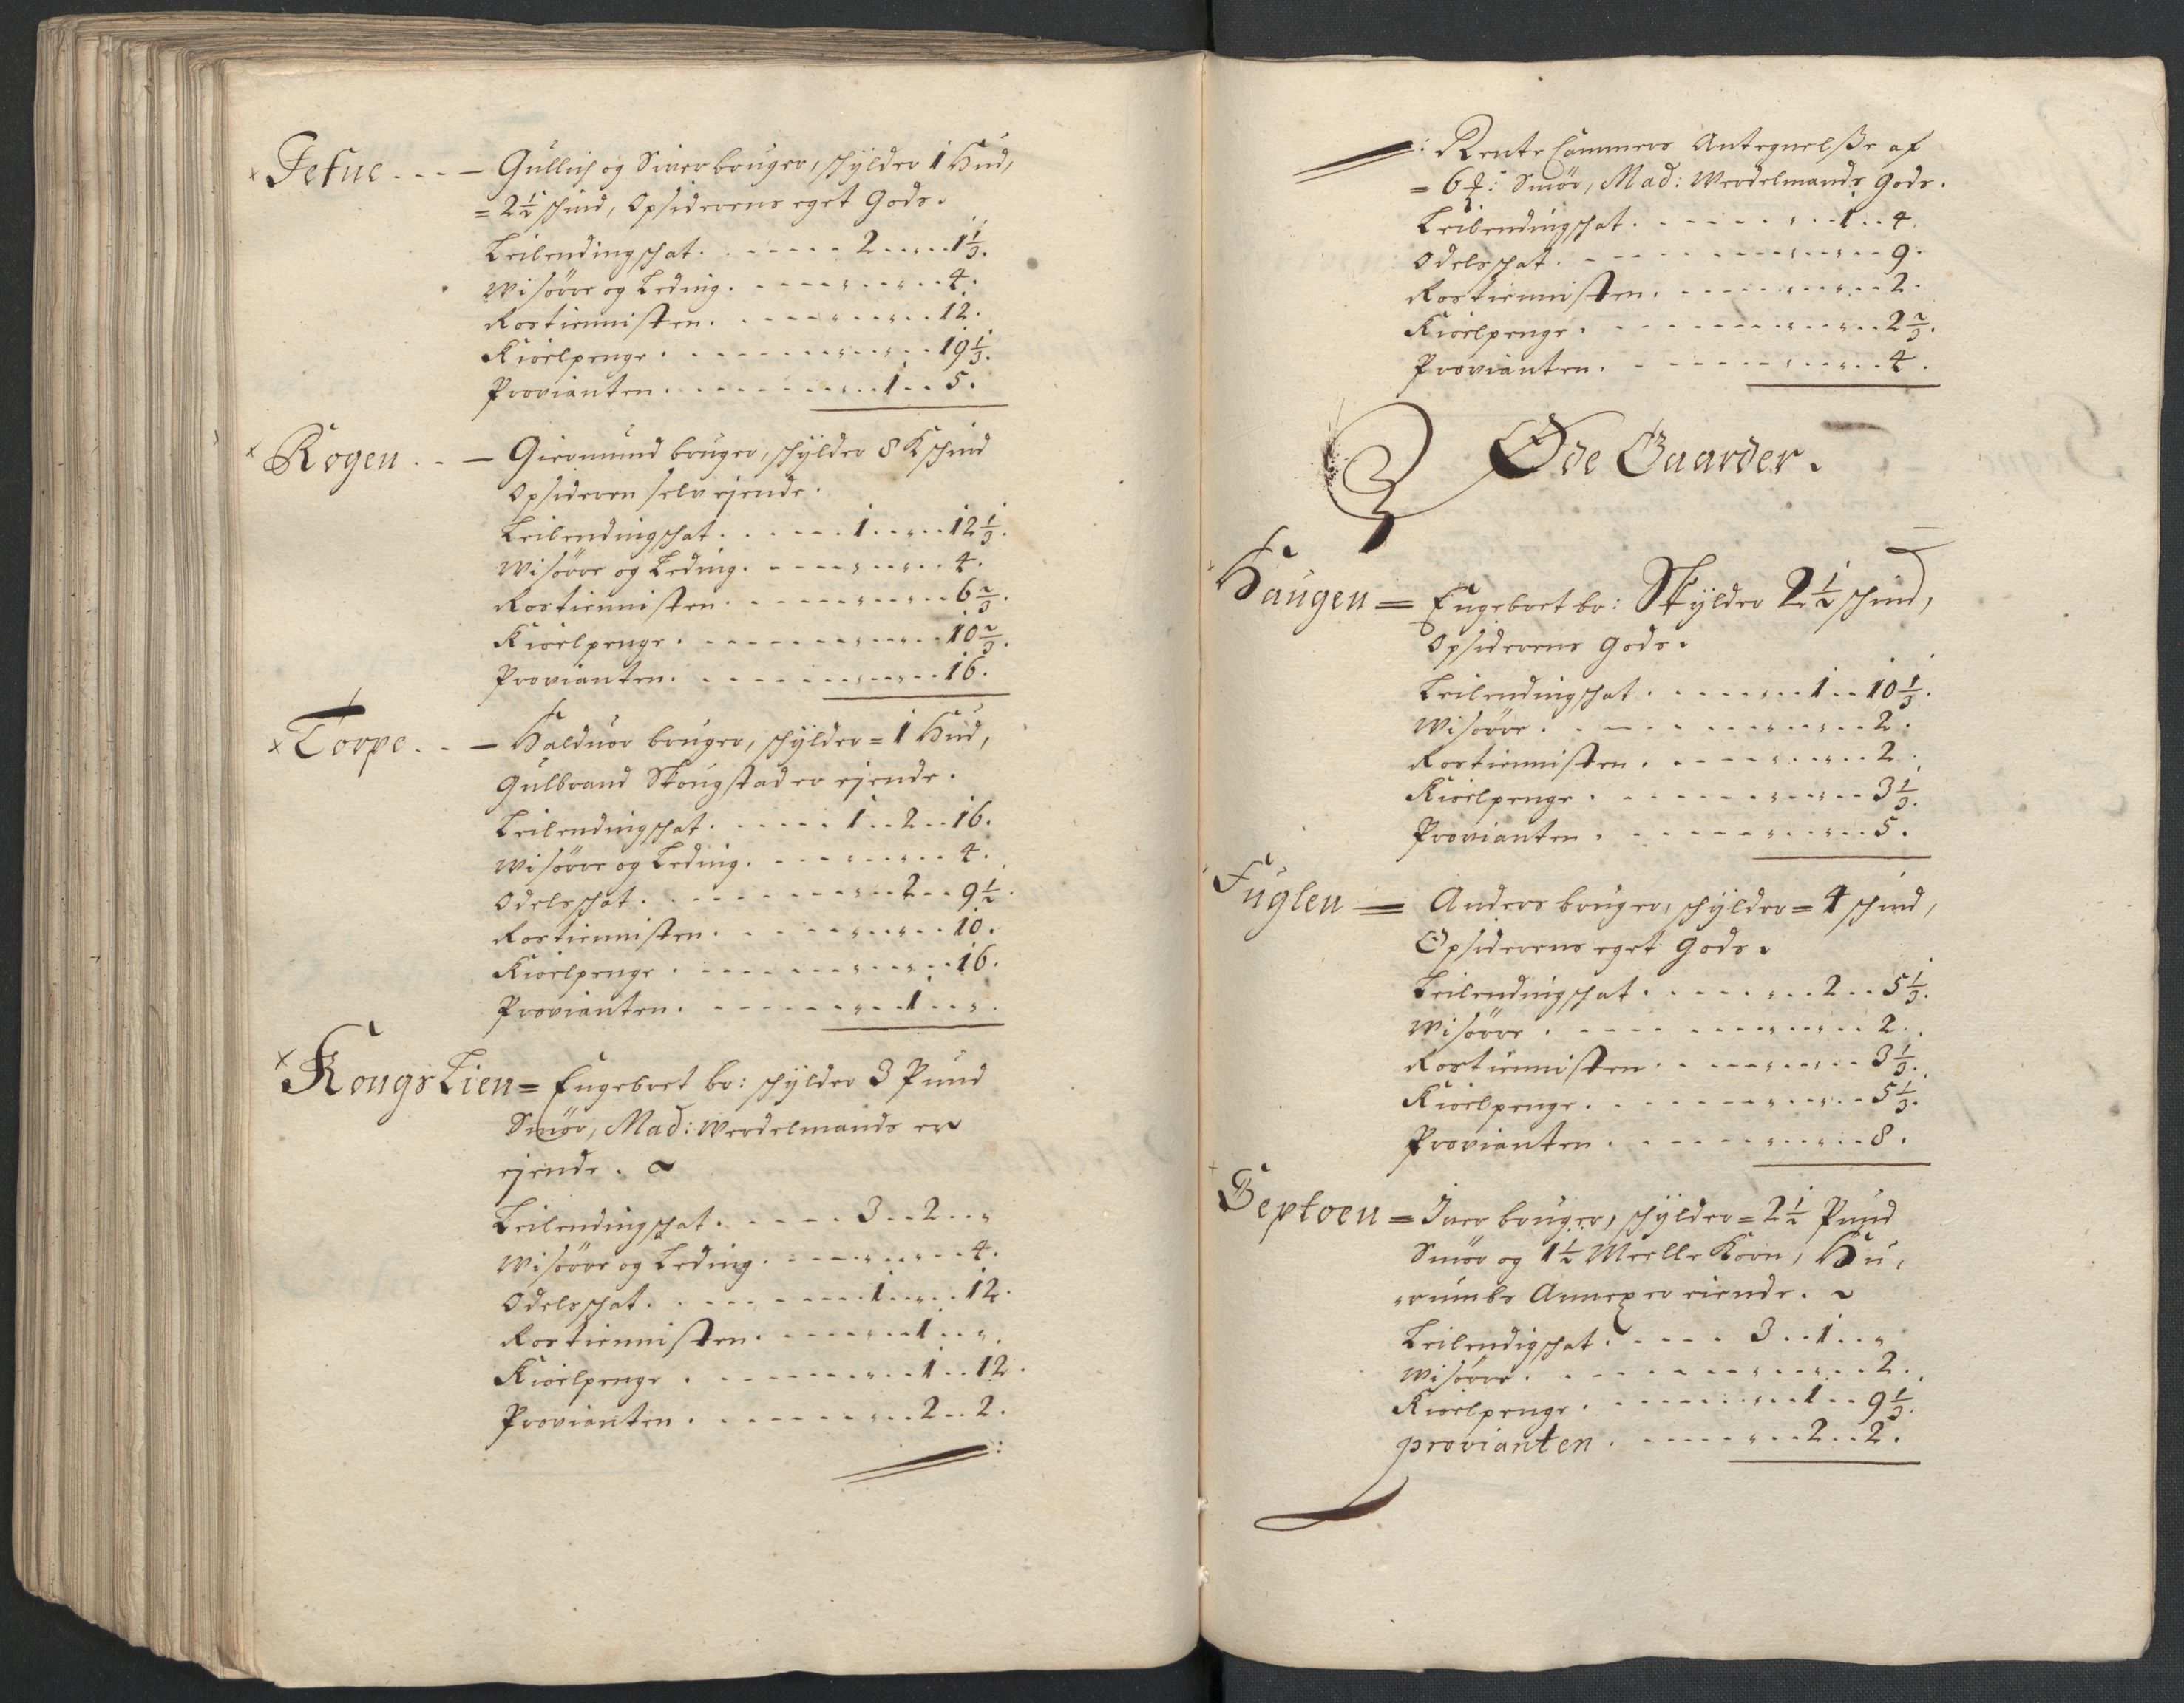 × Jefue . . . — Gullich og Siver bruger, schÿlder 1 Hud,
= 2 ½ schind, Opsiderens eget Gods.
Leilendingschat . . . . . . 2 . . „ . . 1 ⅓.
Wisørre og Leding . . . . . „ . . „ . . 4.
Rostiennisten . . . . . „ . . „ . . 12.
Kiørlpenge . . . . . . „ . . „ . . 19 ⅓.
Provianten . . . . . . „ . . 1 . . 5.
× Rogen . . — Giermund bruger, schÿlder 8 K schind
Opsideren selv ejende.
Leilendingschat . . . . . . 1 . . „ . . 12 ⅓.
Wisørre og Leding . . . . . „ . . „ . . 4.
Rostiennisten . . . . . „ . . „ . . 6 ⅔.
Kiørlpenge . . . . . . „ . . „ . . 10 ⅔.
Provianten . . . . . . „ . . „ . . 16.
× Torpe . . — Haldvor bruger, schÿlder = 1 Hud,
Gulbrand Skougstad er ejende.
Leilendingschat . . . . . 1 . . 2 . . 16.
Wisørre og Leding . . . . . „ . . „ . . 4.
Odelsschat . . . . . . „ . . 2 . . 9 ½.
Rostiennisten . . . . . „ . . „ . . 10.
Kiørlpenge . . . . . . „ . . „ . . 16.
Provianten . . . . . . „ . . 1 . . „.
× KongsLien = Engebret br: schÿlder 3 Pund
Smør, Mad: Werdelmands er
ejende.
Leilendingschat . . . . . 3 . . 2 . . „
Wisørre og Leding . . . . . „ . . „ . . 4.
Odelsschat . . . . . . 1 . . „ . . 12.
Rostiennisten . . . . . „ . . 1 . . „.
Kiørlpenge . . . . . . „ . . 1 . . 12.
Provianten . . . . . . „ . . 2 . . 2.
:
: Rente Cammers Antegnelsse af
= 6 : Smør, Mad: Werdelmands Gods.
Leilendingschat . . . . . „ . . 1 . . 4.
Odelsschat . . . . . . „ . . „ . . 9.
Rostiennisten . . . . . „ . . „ . . 2.
Kiørlpenge . . . . . . „ . . „ . . 2 ⅔.
Provianten . . . . . . „ . . „ . . 4.
Øde Gaarder.
Haugen = Engebret br: Skÿlder 2 ½ schind,
Opsiderens Gods.
Leilendingschat . . . . . „ . . 1 . . 10 ⅓.
Wisørre . . . . . . „ . . „ . . 2.
Rostiennisten . . . . . „ . . „ . . 2.
Kiørlpenge . . . . . . „ . . „ . . 3 ⅓.
Provianten . . . . . . „ . . „ . . 5.
Fuglen = Anders bruger, schÿlder = 4 schind,
Opsiderens eget Gods.
Leilendingschat . . . . . „ . . 2 . . 5 ⅓.
Wisørre . . . . . . „ . . „ . . 2.
Rostiennisten . . . . . „ . . „ . . 3 ⅓.
Kiørlpenge . . . . . . „ . . „ . . 5 ⅓.
Provianten . . . . . . „ . . „ . . 8.
Geptoen = Iver bruger, schÿlder = 2 ½ Pund
Smør og 1 ½ Meelle Korn, Hu,
„rumbs Annex er eiende.
Leilendigschat . . . . . 3 . . 1 . . „
Wisørre . . . . . . „ . . „ . . 2.
Kiørlpenge . . . . . . „ . . 1 . . 9 ⅓.
provianten . . . . . . „ . . 2 . . 2.